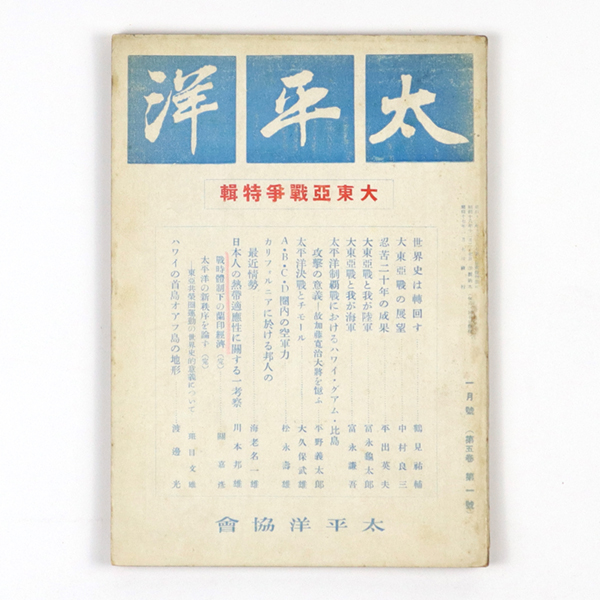 太平洋
大東亞戰爭特輯
世界史は轉回す 鶴見祐輔
大東亞戰の展望 中村良三
忍苦二十年の成果 平出英夫
大東亞戰と我が陸軍 富永龜太郎
大東亞戰と我が海軍 富永謙吾
太平洋制覇戰におけるハワイ・グアム・比島
攻擊の意義―故加藤寬治大將を偲ぶ 平野義太郎
太平洋決戰とチモール 大久保武雄
A・B・C・D圈內の空軍力 松永壽雄
カリフォルニアに於ける邦人の
最近情勢 海老名一雄
日本人の熱帶適應性に關する一考察 川本邦雄
戰時體制下の蘭印經濟(完)
太平洋の新秩序を論す(完)
―東亞共榮圈運動の世界史的意義について
ハワイの首島オアフ島の地形 渡邊光
一月號(第五卷 第一號)
太平洋協會